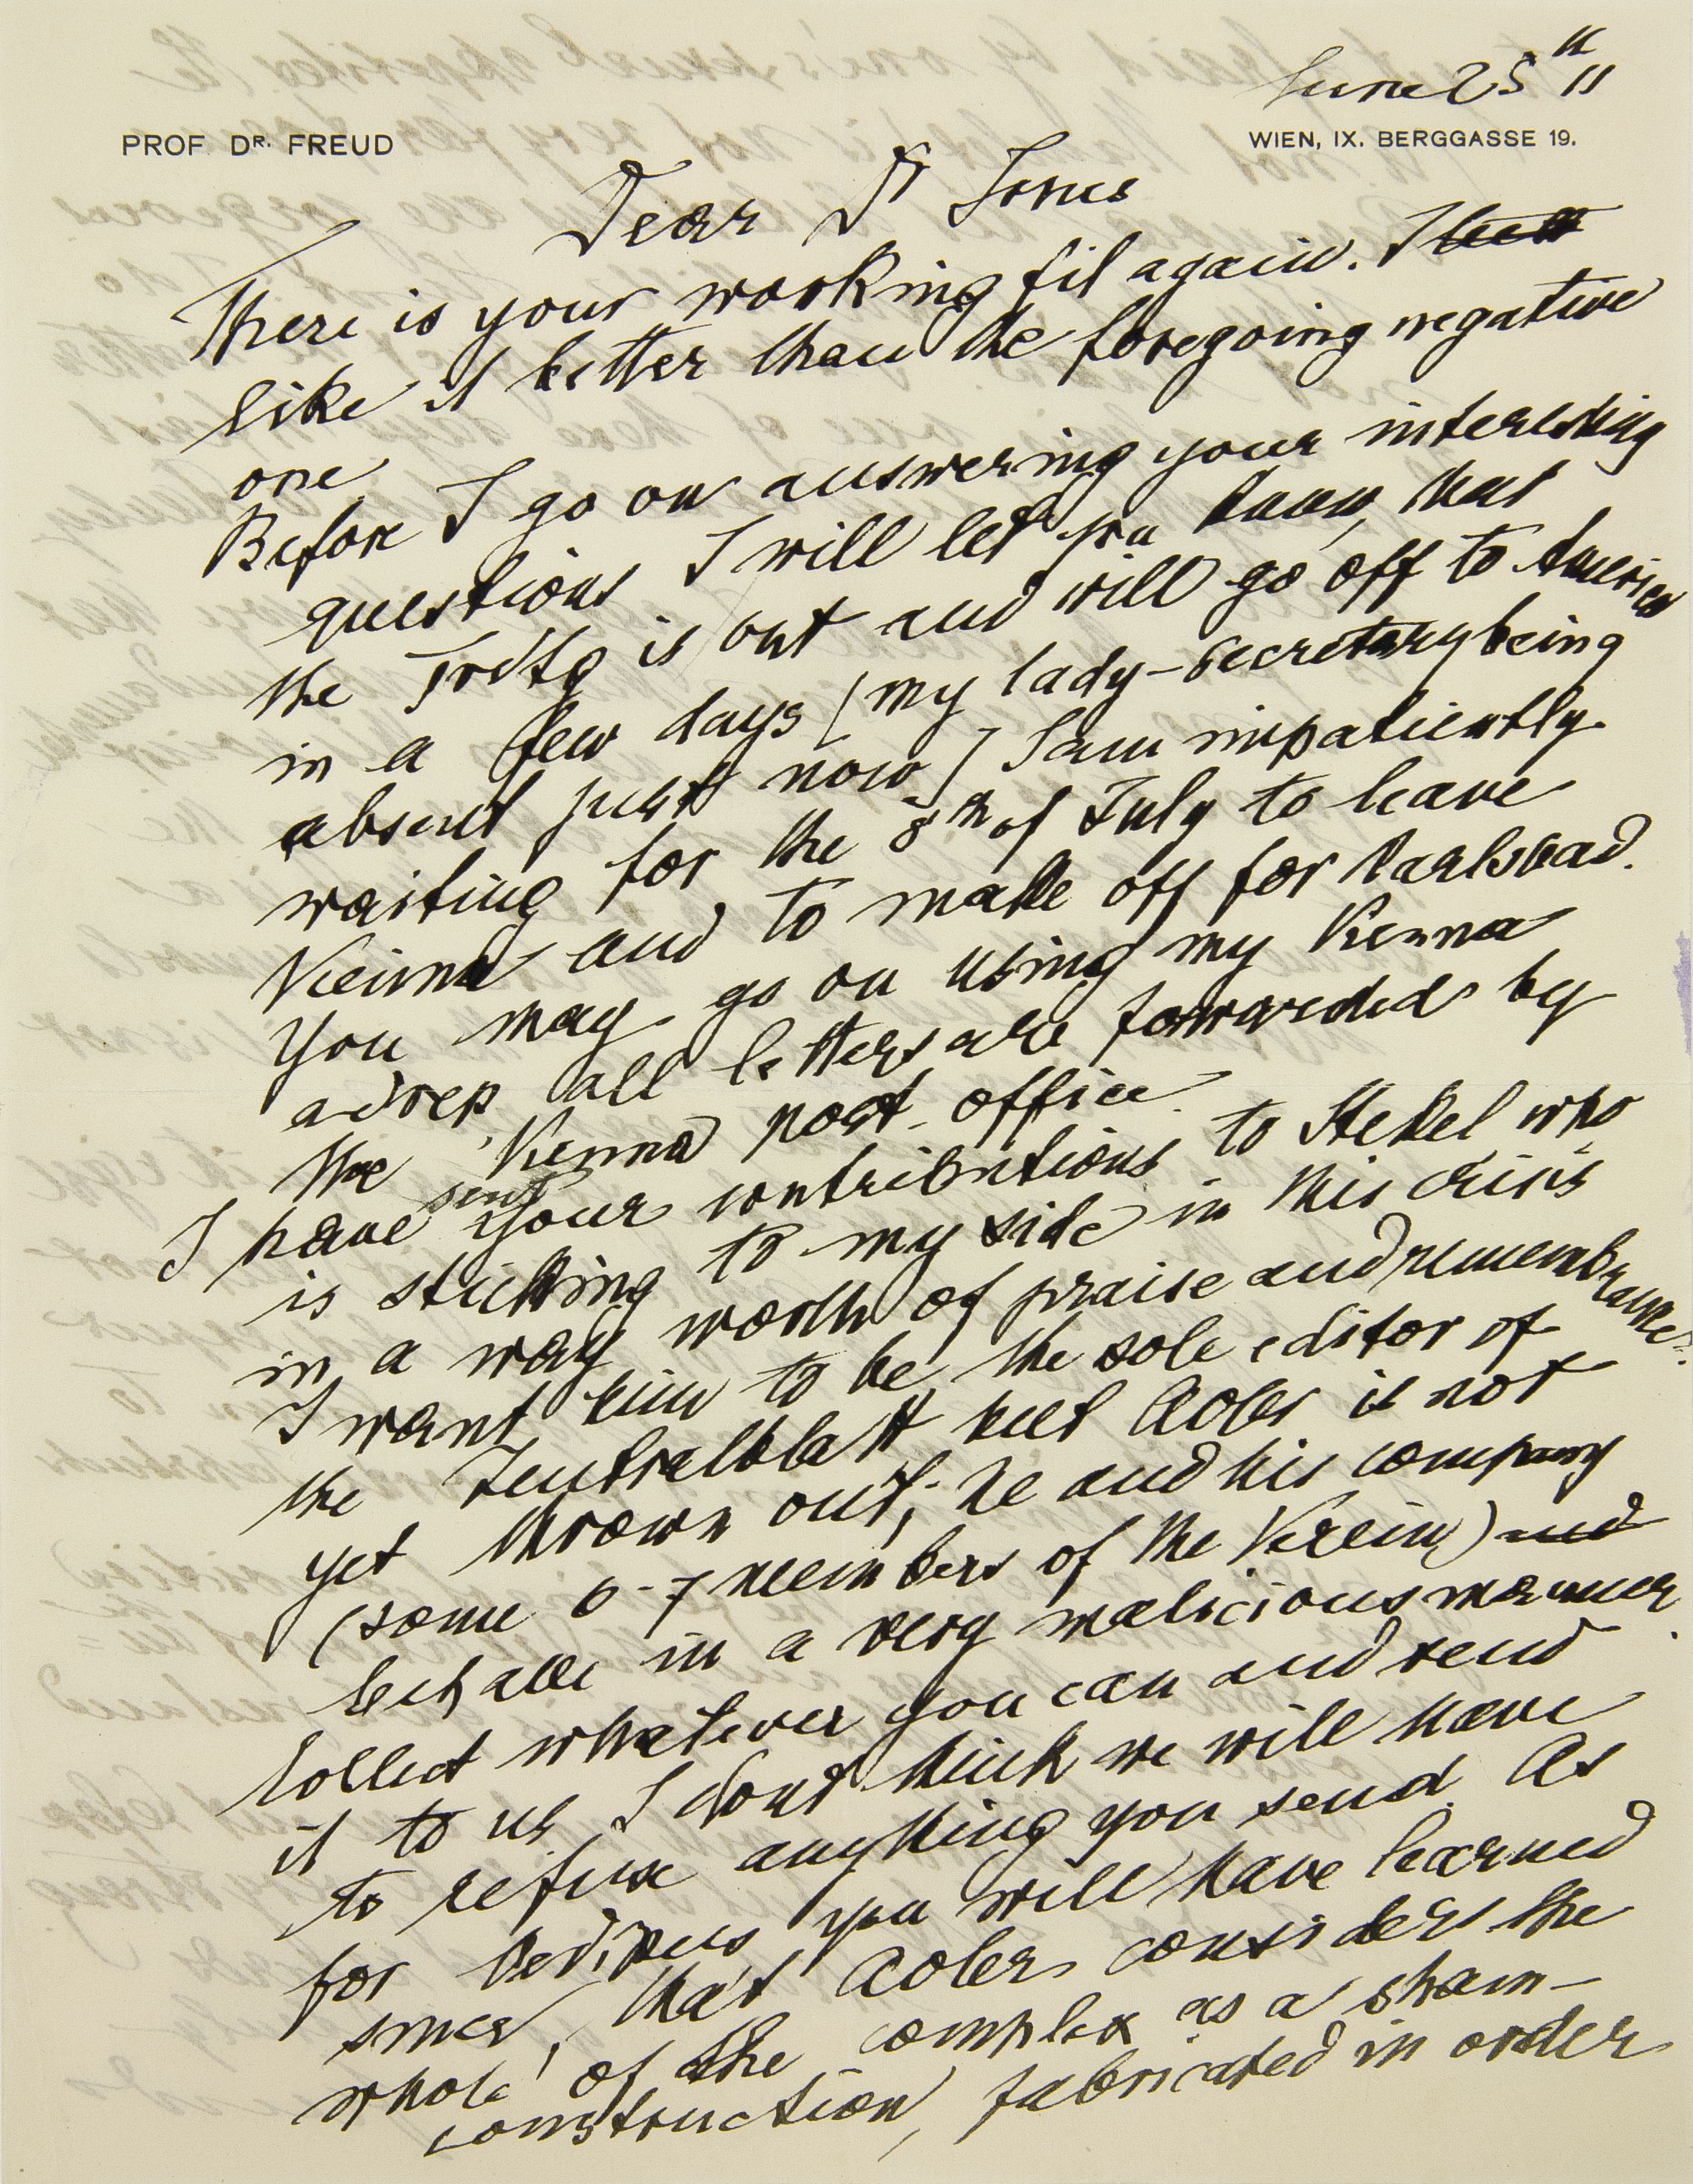 June 25th 11
PROF. DR. FREUD
WIEN, IX. BERGGASSE 19.
Dear Dr Jones
There is your working fit again. I
like it better than the foregoing negative
one
Before I go on answering your interesting
questions I will let you know, that
the Trdtg is out and will go off to America
in a few days (my lady-secretary being
absent just now) I am impatiently
waiting for the 8th of July to leave
Vienna and to make off for Karlsbad.
You may go on using my Vienna
adress, all letters are forwarded by
the Vienna post-office.
I have sent your contributions to Stekel who
is sticking to my side in this crisis
in a way worth of praise and remembrance.
I want him to be the sole editor of
the Zentralblatt but Adler is not
yet thrown out; he and his company
(some 6-7 members of the Verein) and
behave in a very malicious manner.
Collect whatever you can and send
it to us I dont think we will have
to refuse anything you send. As
for Oedipus, you will have learned
since, that Adler considers the
whole of the complex as a sham-
construction, fabricated in order